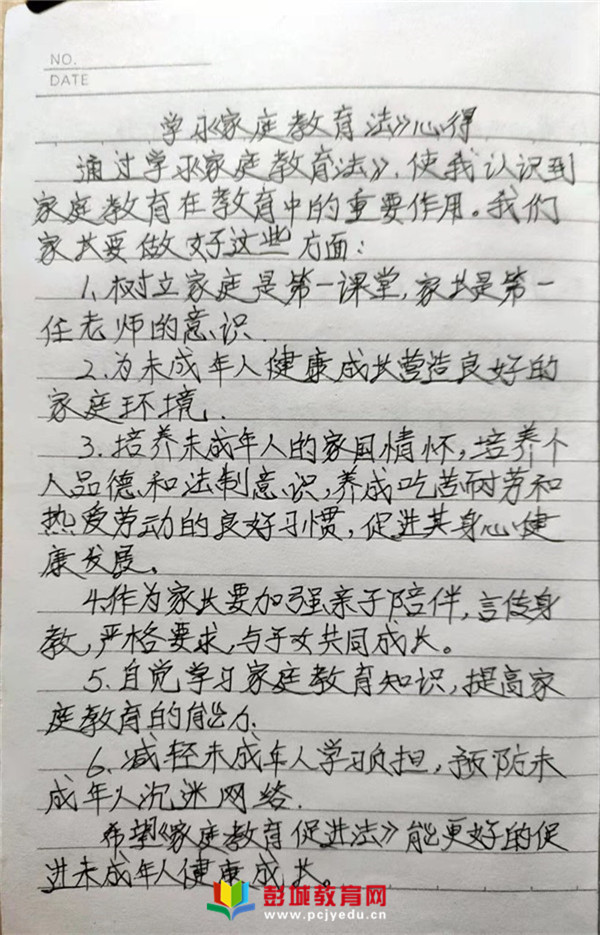 NO.
DATE
学习《家庭教育法》心得
通过学习《家庭教育法》,使我认识到
家庭教育在教育中的重要作用。我们
家长要做好这些方面:
1、树立家庭是第一课堂,家长是第一
任老师的意识.
2.为未成年人健康成长营造良好的
家庭环境.
3.培养未成年人的家国情怀,培养个
人品德和法制意识,养成吃苦耐劳和
热爱劳动的良好习惯,促进其身心健
康发展。
4.作为家长要加强亲子陪伴,言传身
教,严格要求,与子女共同成长。
5.自觉学习家庭教育知识,提高家
庭教育的能力.
6.减轻未成年人学习负担,预防未
成年人沉迷网络.
希望《家庭教育促进法》能更好的促
进未成年人健康成长。
彭城教育网
www.pcjyedu.cn